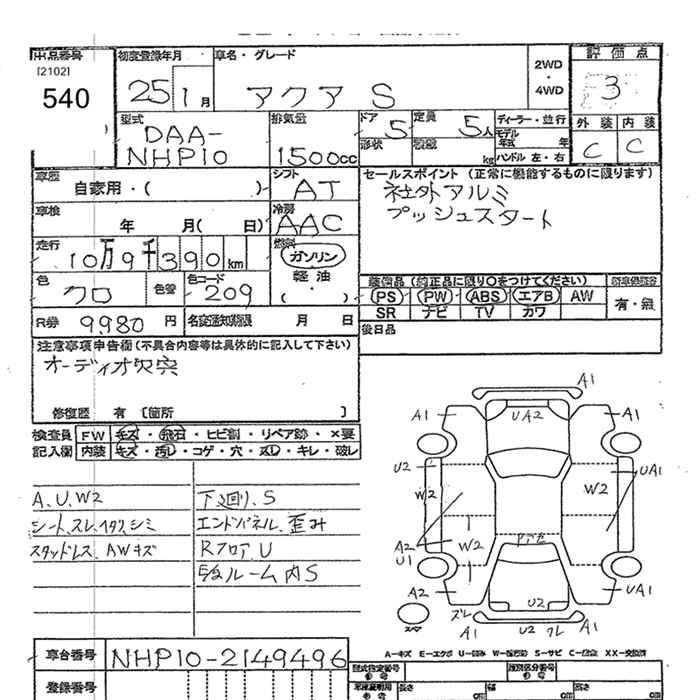 出品番号
[2102]
540
初度登録年月 車名・グレード
25 1月 アクア S
2WD
・
4WD
評価点
3
型式 DAA-
NHP10
排気量
1500cc
ドア 5
形状
定員 5人
積載 kg
ディーラー・並行
モデル
年式 年
ハンドル 左・右
外装 内装
C C
車歴
自家用・( )
シフト
AT
車検
年 月( 日)
冷房
AAC
走行
10万9千390km
燃料
ガソリン
軽油
・
( )
色
クロ
色替
色コード
209
R券 9980円
名変通知期限 月 日
セールスポイント (正常に機能するものに限ります)
社外アルミ
プッシュスタート
装備品 (純正品に限り○をつけてください)
PS PW ABS エアB AW
SR ナビ TV カワ
有・無
後日品
注意事項申告欄(不具合内容等は具体的に記入して下さい)
オーディオ欠穴
修復歴 有 [箇所 ]
検査員 FW キズ・飛石・ヒビ割・リペア跡・×要
記入欄 内装 キズ・汚し・コゲ・穴・スレ・キレ・破レ
A、U、W2
シート、スレ、イタミ、シミ
スタッドレス、AWキズ
下廻り、S
エンドパネル、歪み
Rフロア、U
E/gルーム内S
A1
A1 UA2 A1
U2 UA1
W2 W2
A2
U1 W2
A2 U2 UA1
ズレ
A1 U2 ワレ A1
A－キズ E－エクボ U－凹み W－補修跡 S－サビ C－腐食 XX－交換済
車台番号 NHP10-2149496
登録番号
型式指定番号 類別区分番号
長さ cm 幅 cm 高さ cm